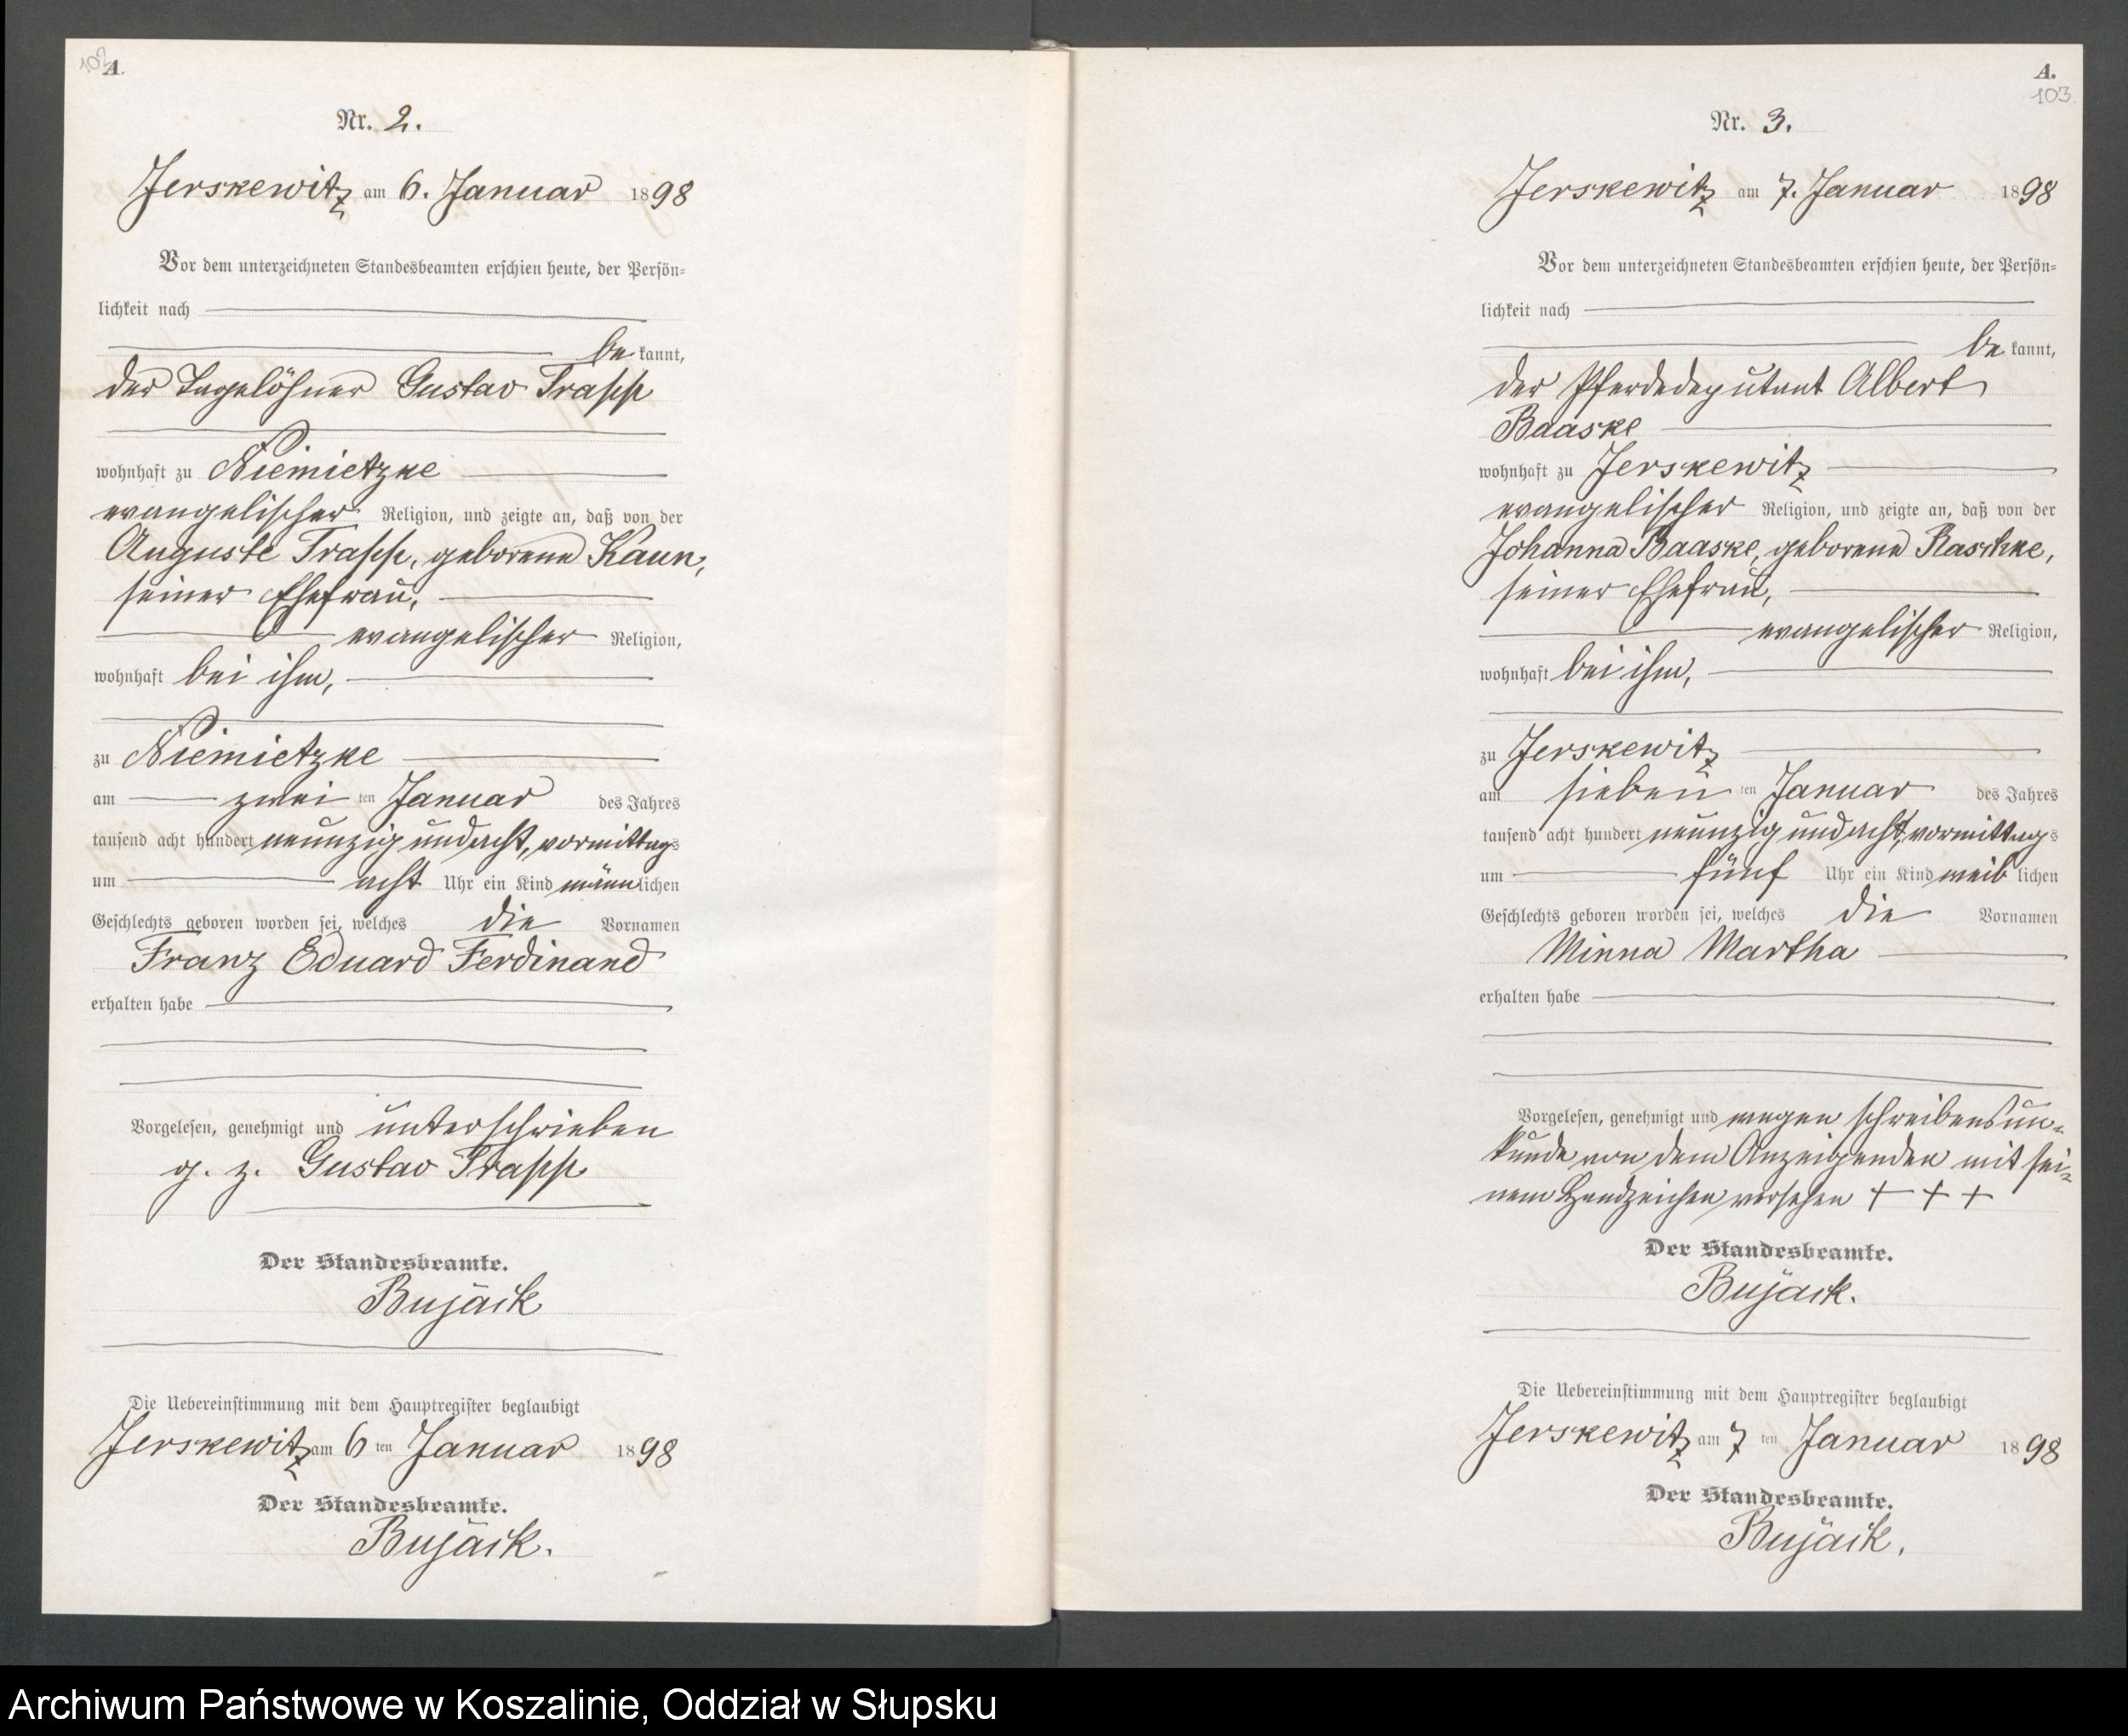 102
A.
Nr. 2.
Jerskewitz am 6. Januar 1898
Vor dem unterzeichneten Standesbeamten erschien heute, der Persön=
lichkeit nach
be kannt,
der Tagelöhner Gustav Trapp
wohnhaft zu Niemietzke
evangelischer Religion, und zeigte an, daß von der
Auguste Trapp, geborene Kaun,
seiner Ehefrau,
evangelischer Religion,
wohnhaft bei ihm,
zu Niemietzke
am zwei ten Januar des Jahres
tausend acht hundert neunzig und acht, vormittags
um acht Uhr ein Kind männlichen
Geschlechts geboren worden sei, welches die Vornamen
Franz Eduard Ferdinand
erhalten habe
Vorgelesen, genehmigt und unterschrieben
g. z. Gustav Trapp
Der Standesbeamte.
Bujack
Die Uebereinstimmung mit dem Hauptregister beglaubigt
Jerskewitz am 6 ten Januar 1898
Der Standesbeamte.
Bujack.
A.
103
Nr. 3.
Jerskewitz am 7. Januar 1898
Vor dem unterzeichneten Standesbeamten erschien heute, der Persön=
lichkeit nach
be kannt,
der Pferdedeputant Albert
Baaske
wohnhaft zu Jerskewitz
evangelischer Religion, und zeigte an, daß von der
Johanna Baaske, geborene Raschke,
seiner Ehefrau,
evangelischer Religion,
wohnhaft bei ihm,
zu Jerskewitz
am sieben ten Januar des Jahres
tausend acht hundert neunzig und acht, vormittags
um fünf Uhr ein Kind weib lichen
Geschlechts geboren worden sei, welches die Vornamen
Minna Martha
erhalten habe
Vorgelesen, genehmigt und wegen Schreibensun=
kunde von dem Anzeigenden mit sei=
nem Handzeichen versehen + + +
Der Standesbeamte.
Bujack.
Die Uebereinstimmung mit dem Hauptregister beglaubigt
Jerskewitz am 7 ten Januar 1898
Der Standesbeamte.
Bujack.
Archiwum Państwowe w Koszalinie, Oddział w Słupsku